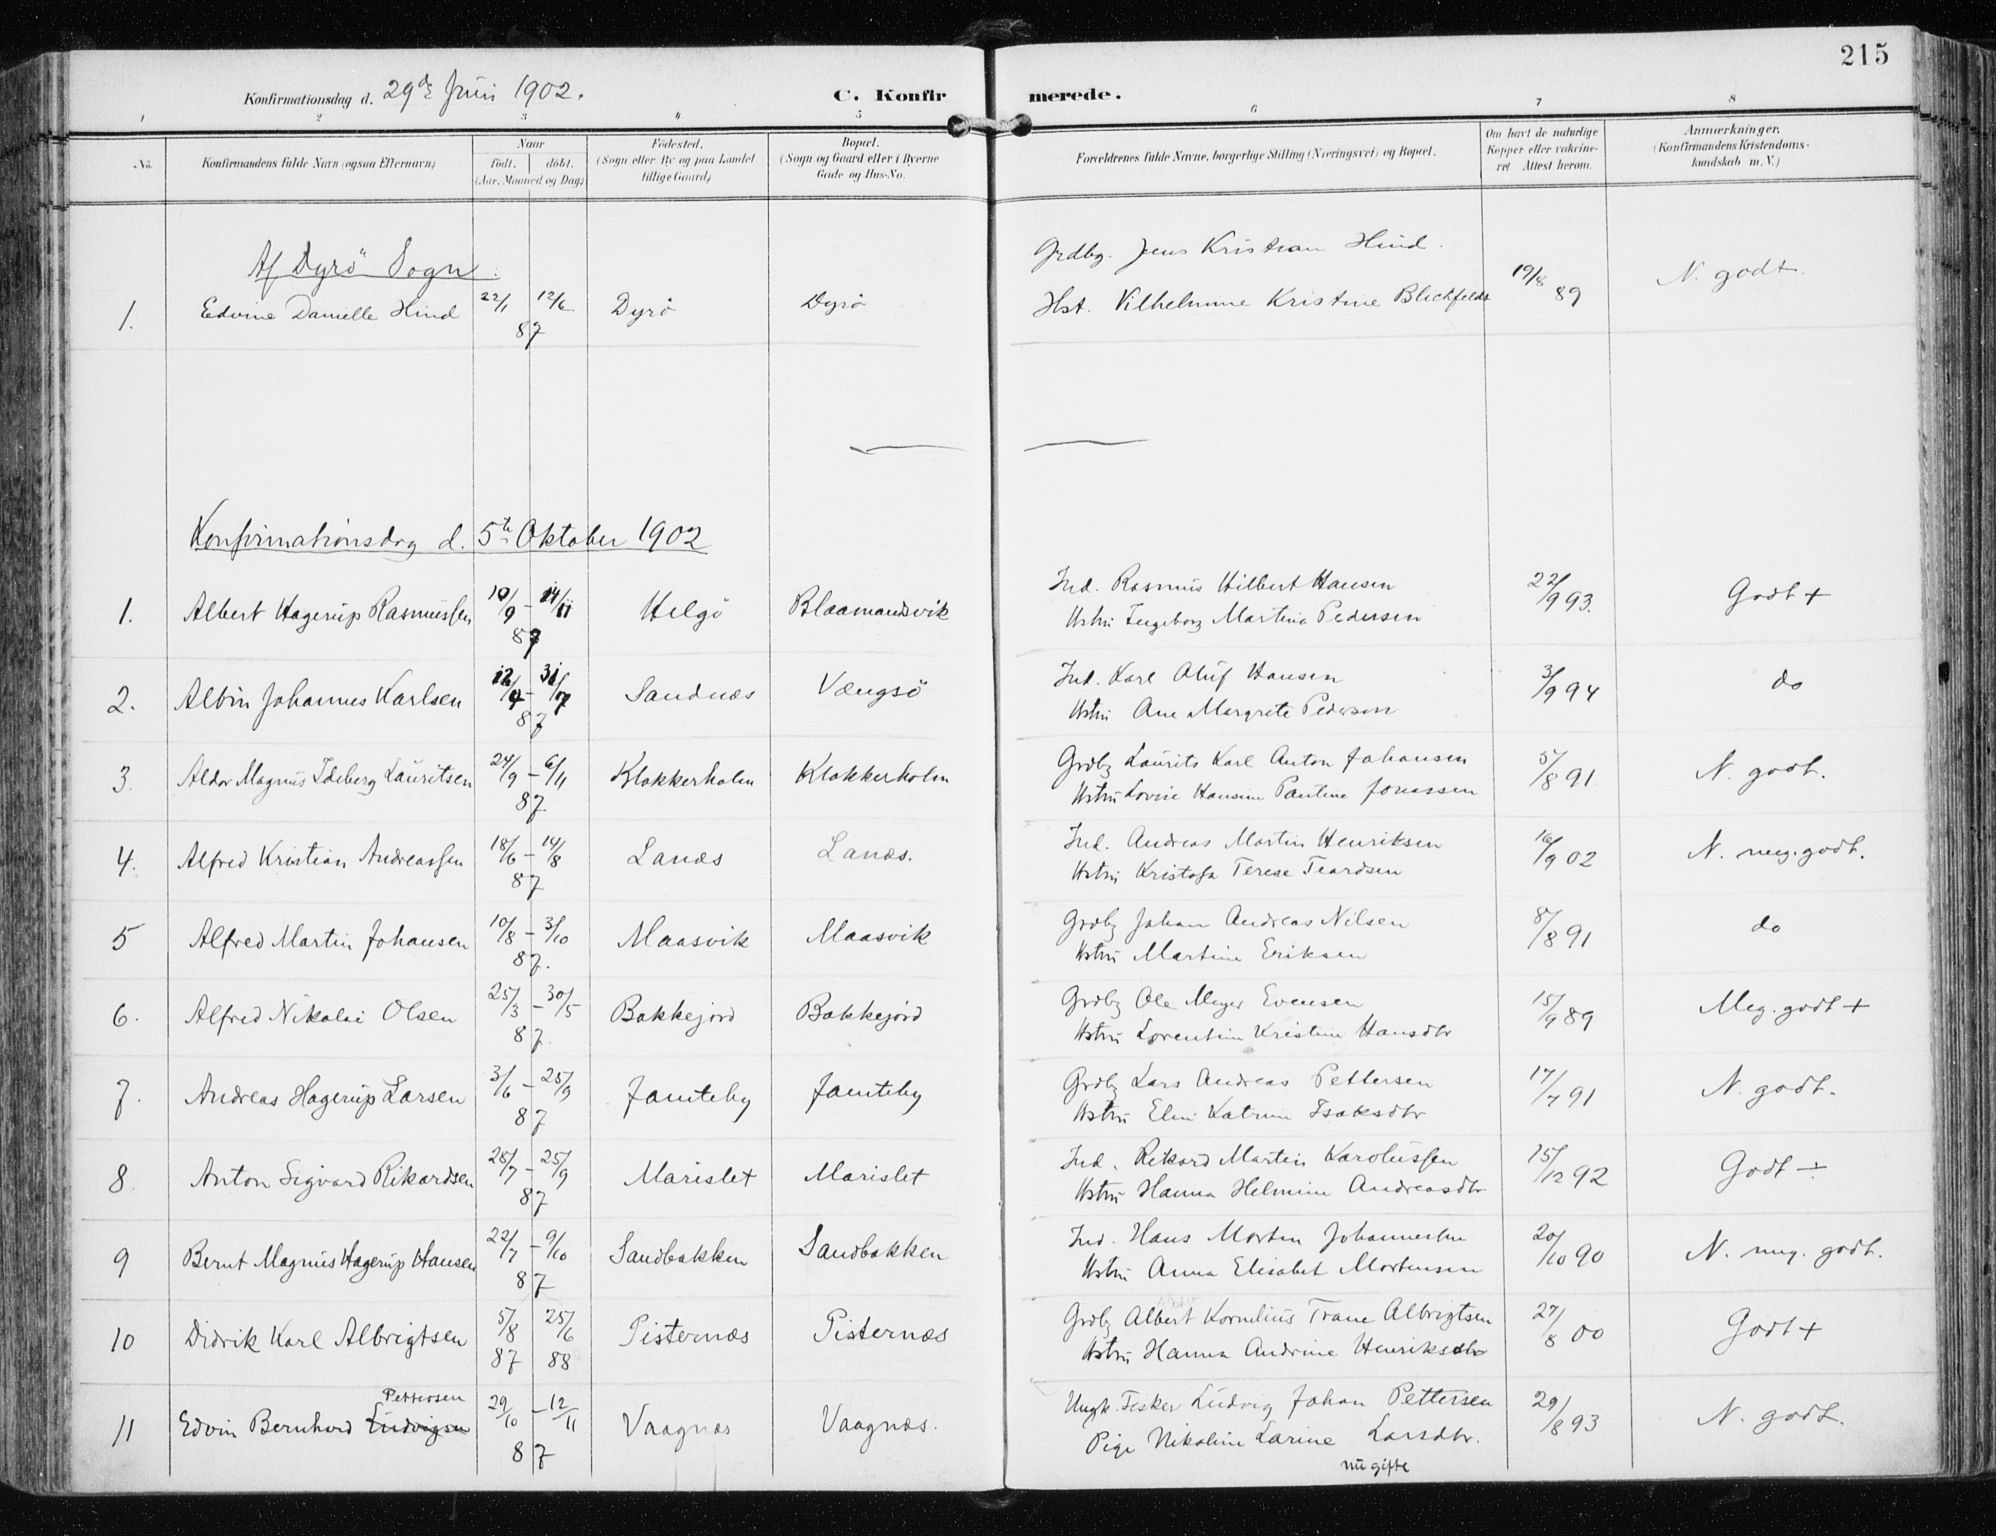 215
Konfirmationsdag d. 29de Juni 1902.
C. Konfirmerede.
1 2 3 4 5 6 7 8
No.
Konfirmandens fulde Navn (ogsaa Efternavn)
Naar
født. døbt.
(Aar, Maaned og Dag)
Fødested.
(Sogn eller By og paa Landet
tillige Gaard)
Bopæl.
(Sogn og Gaard eller i Byerne
Gade og Hus-No.
Forældrenes fulde Navne, borgerlige Stilling (Næringsvei) og Bopæl.
Om havt de naturlige
Kopper eller vakcine-
ret Attest herom.
Anmærkninger.
(Konfirmandens Kristendoms-
kundskab m. V.)
Af Dyrö Sogn.
1. Edvine Danielle Hind 22/1 12/6 87 Dyrö Dyrö Grdbg. Jens Kristian Hind. 19/8 89 N. godt.
Hst. Vilhelmine Kristine Blickfeldt
Konfirmationsdag d. 5te Oktober 1902
1. Albert Hagerup Rasmussen 10/9 - 14/11 87 Helgö Blaamandsvik Ind. Rasmus Hilbert Hansen 22/9 93. Godt +
Hstru Ingeborg Martina Pedersen
2. Albin Johannes Karlsen 87 Sandnæs Vængsö Ind. Karl Oluf Hansen 3/9 94 do
Hstru Ane Margrete Pedersen
3. Aldor Magnus Edeberg Lauritsen 24/9 - 6/11 87 Klokkerholm Klokkerholm Grdbg Laurits Karl Anton Johansen 5/8 91. N. godt.
Hstru Lovise Hansine Pauline Jonassen
4. Alfred Kristian Andreassen 18/6 - 14/8 87 Lanæs Lanæs. Ind. Andreas Martin Henriksen 16/9 02 N. meg. godt.
Hstru Kristofa Terese Teardsen
5 Alfred Martin Johansen 10/8 - 3/10 87. Maasvik Maasvik Grdbg Johan Andreas Nilsen 8/8 91 do
Hstru Martine Eriksen
6. Alfred Nikolai Olsen 25/3 - 30/5 87. Bakkejord Bakkejord Grdbg Ole Meyer Evensen 15/9 89 Meg. godt +
Hstru Lorentine Kristine Hansdtr
7. Andreas Hagerup Larsen 3/6 - 25/9 87 Jamteby Jamteby Grdbg Lars Andreas Pettersen 17/7 91 N. godt.
Hstru Elen Katrine Isaksdtr
8. Anton Sigvard Rikardsen 28/7 - 25/9 87 Marislet Marislet Ind. Rikard Martin Karolussen 15/12 92 Godt ÷
Hstru Hanna Helmine Andreasdtr
9 Bernt Magnus Hagerup Hansen 22/7 - 9/10 87 Sandbakken Sandbakken Ind. Hans Morten Johannessen 20/10 90 N. meg. godt.
Hstru Anna Elisabet Mortensen
10 Didrik Karl Albrigtsen 5/8 87 25/6 88 Pisternæs Pisternæs Grdbg Albert Kornelius Trane Albrigtsen 27/8 00 Godt +
Hstru Hanna Andrine Henriksdtr
Pettersen
11 Edvin Bernhard Ludvigsen 29/10 - 12/11 87 Vaagnæs Vaagnæs. Ungk. Fisker Ludvig Johan Pettersen 29/8 93 N. godt.
Pige Nikoline Larine Larsdtr.
nu gifte